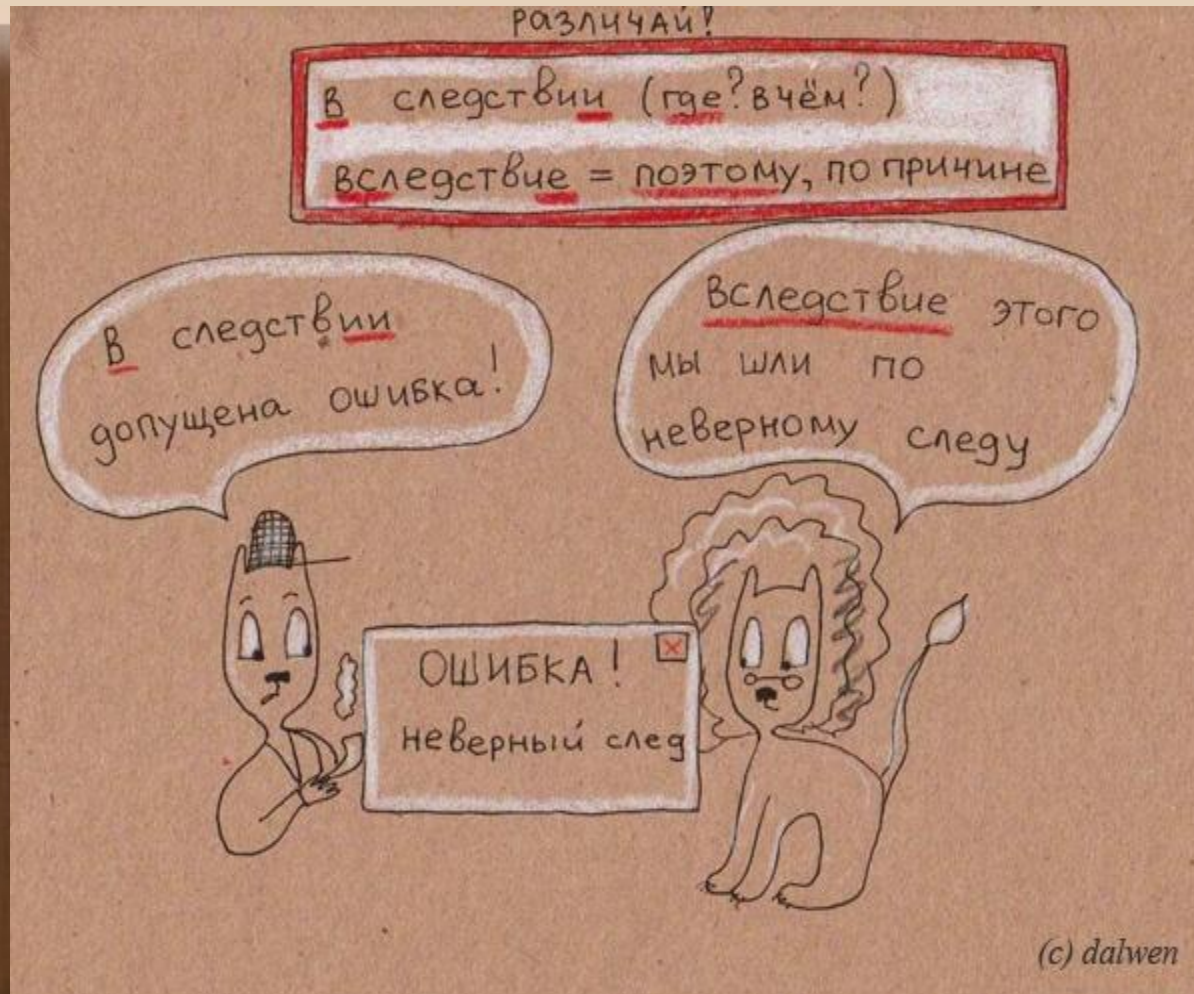 Различай!
В следствии (где? в чём?)
Вследствие = поэтому, по причине
В следствии
допущена ошибка!
Вследствие этого
мы шли по
неверному следу
ОШИБКА!
неверный след
(c) dalwen